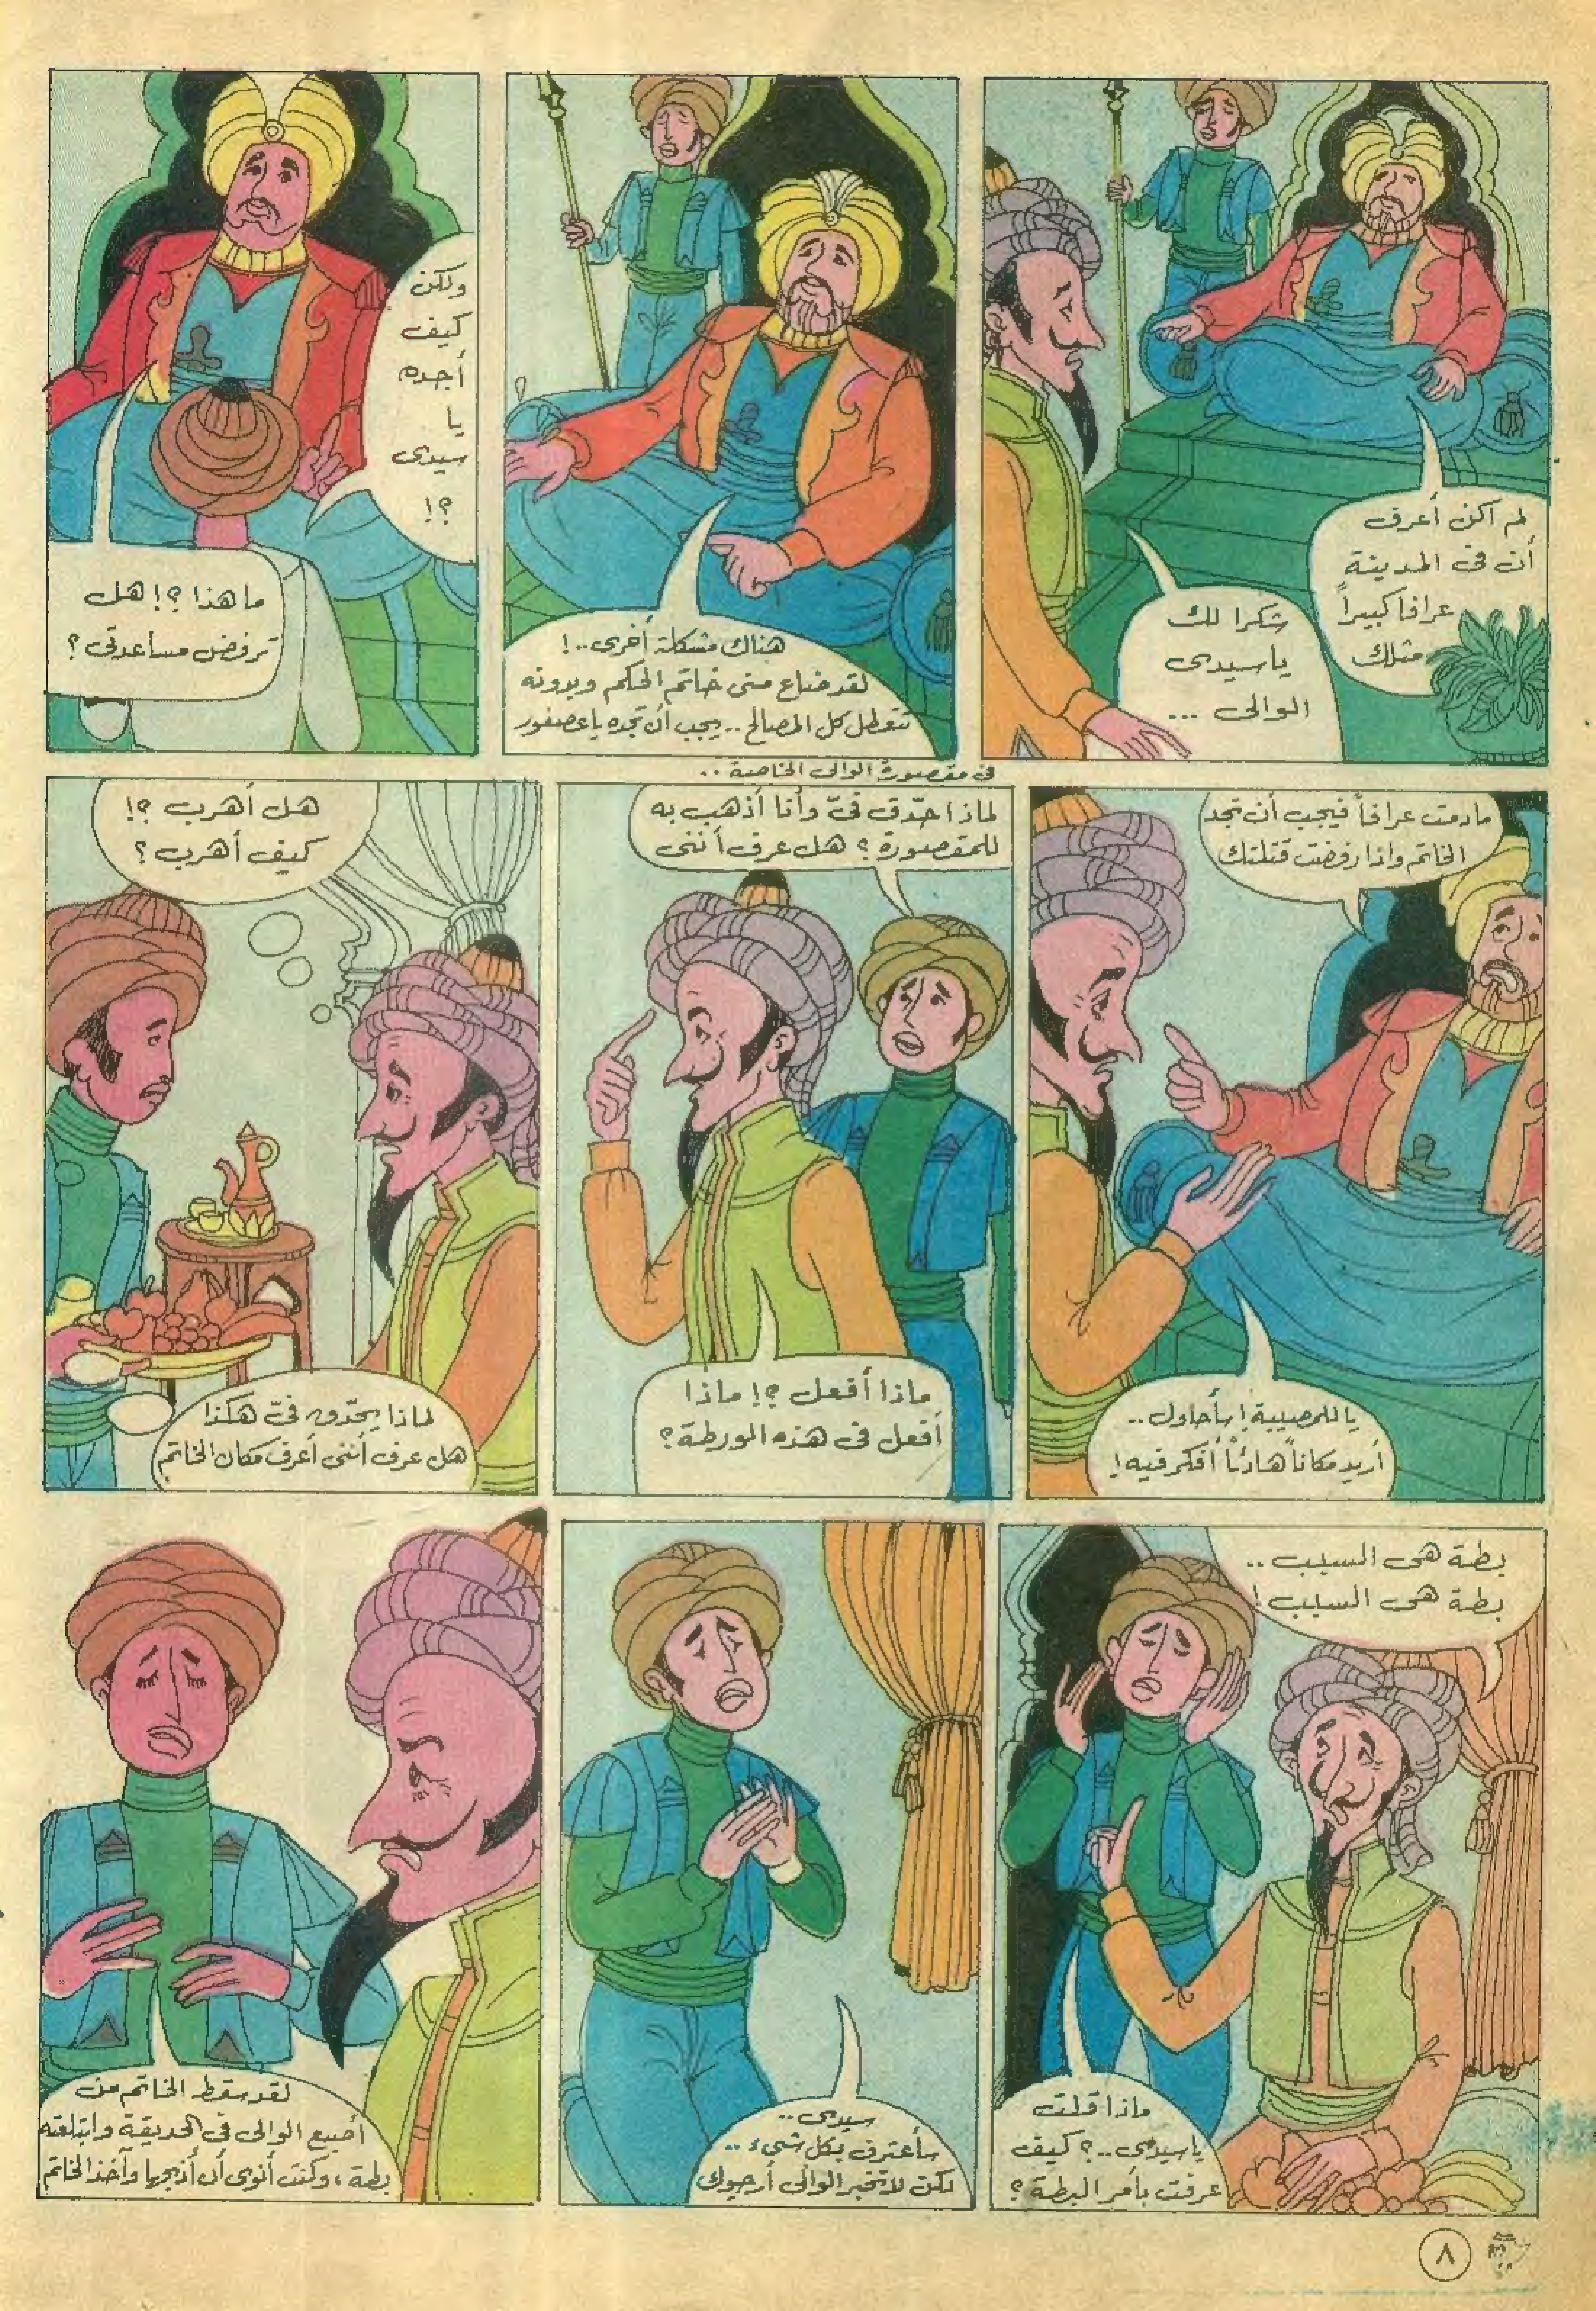 لم أكن أعرف
أن فى المدينة
عرافا كبيراً
مثلك
شكرا لك
يا سيدى
الوالى ...
هناك مشكلة أخرى..!
لقد ضاع منى خاتم الحكم وبدونه
تتعطل كل المصالح .. يجب أن تجده يا عصفور
ولكن
كيف
أجده
يا
سيدى
؟!
ما هذا ؟! هل
ترفض مساعدتى ؟
مادمت عرافاً فيجب أن تجد
الخاتم وإذا رفضت قتلتك
يا للمصيبة ! سأحاول ..
أريد مكاناً هادئاً أفكر فيه !
فى مقصورة الوالى الخاصة ..
لماذا حدّق فىّ وأنا أذهب به
للمقصورة ؟ هل عرف أننى
ماذا أفعل ؟! ماذا
أفعل فى هذه الورطة ؟
هل أهرب ؟!
كيف أهرب ؟
لماذا يحدّق فىّ هكذا
هل عرف أننى أعرف مكان الخاتم
بطة هى السبب ..
بطة هى السبب !
ماذا قلت
يا سيدى ..؟ كيف
عرفت بأمر البطة ؟
سيدى ..
سأعترف بكل شىء ..
لكن لا تخبر الوالى أرجوك
لقد سقط الخاتم من
أصبع الوالى فى الحديقة وابتلعته
بطة ، وكنت أنوى أن أذبحها وآخذ الخاتم
٨